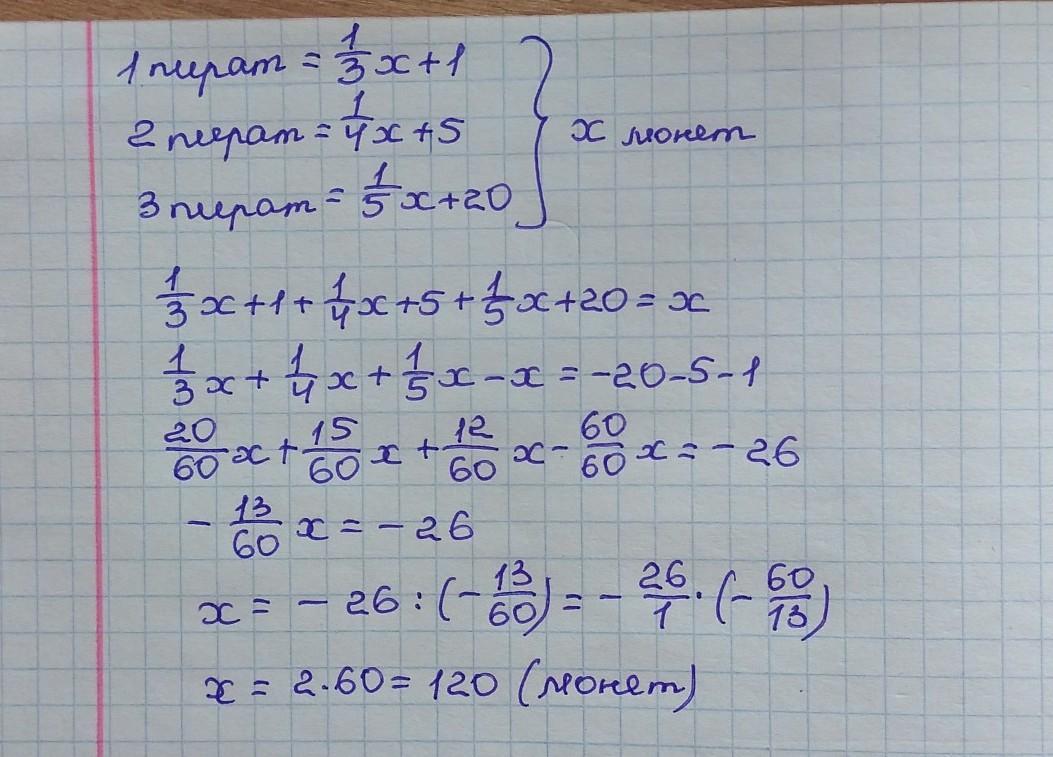 1 пират = 1/3 x + 1
2 пират = 1/4 x + 5 } x монет
3 пират = 1/5 x + 20
1/3 x + 1 + 1/4 x + 5 + 1/5 x + 20 = x
1/3 x + 1/4 x + 1/5 x - x = -20 - 5 - 1
20/60 x + 15/60 x + 12/60 x - 60/60 x = - 26
- 13/60 x = - 26
x = - 26 : (- 13/60) = - 26/1 · (- 60/13)
x = 2·60 = 120 (монет)